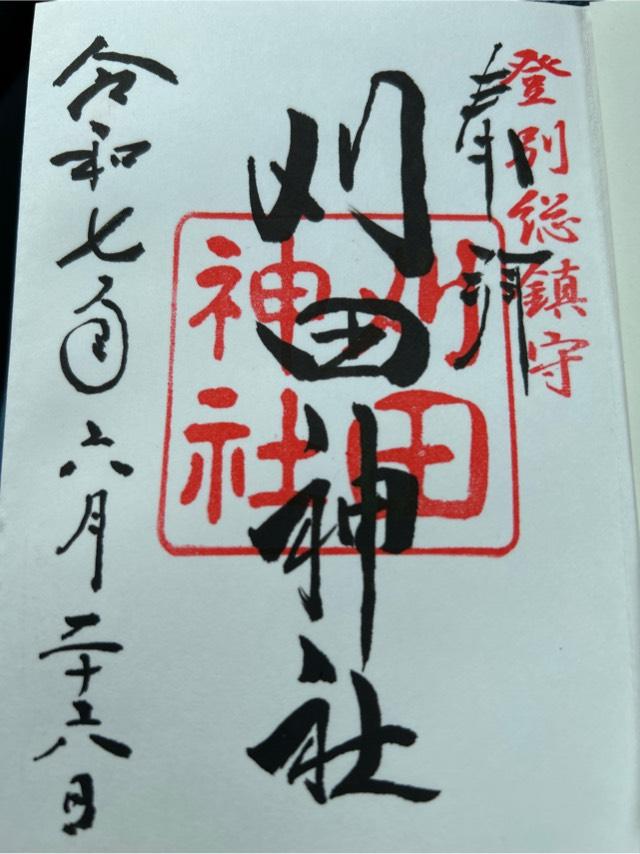 登別総鎮守
奉拝
刈田神社
刈田
神社
令和七年六月二十六日